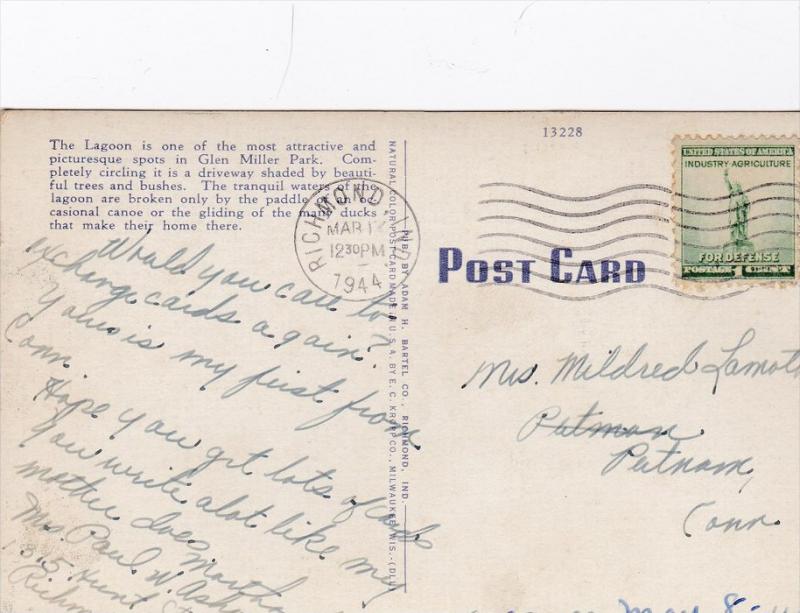 The Lagoon is one of the most attractive and
picturesque spots in Glen Miller Park. Com-
pletely circling it is a driveway shaded by beauti-
ful trees and bushes. The tranquil waters of the
lagoon are broken only by the paddle of an oc-
casional canoe or the gliding of the many ducks
that make their home there.
Would you care to
exchange cards again?
Yours is my first from
Conn.
Hope you get lots of cards
you write alot like my
mother does.
Mrs. Paul W.
135 Hunt
Richm
NATURAL COLOR POST CARD MADE IN U.S.A. BY E. C. KROPP CO., MILWAUKEE, WIS.
PUB. BY ADAM H. BARTEL CO., RICHMOND, IND.
13228
RICHMOND, IND.
MAR
1230 PM
1944
POST CARD
UNITED STATES OF AMERICA
INDUSTRY AGRICULTURE
FOR DEFENSE
POSTAGE 1 CENT
Mrs. Mildred Lamoth
Putman
Putnam,
Conn